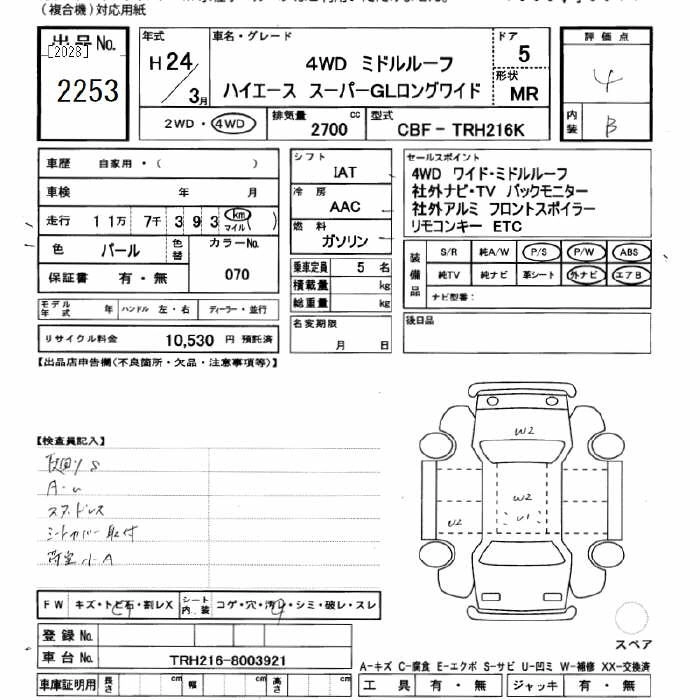 (複合機)対応用紙
出品No.
[2028]
2253
年式
H 24/3月
車名・グレード
4WD ミドルルーフ
ハイエース スーパーGLロングワイド
ドア
5
形状
MR
評価点
4
内装
B
2WD・4WD
排気量
2700 cc
型式
CBF-TRH216K
車歴 自家用・( )
車検 年 月
走行 11万 7千 3 9 3 km マイル ( )
色 パール
色替
カラーNo.
070
保証書 有・無
モデル年式 年 ハンドル 左・右 ディーラー・並行
リサイクル料金 10,530 円 預託済
シフト
IAT
冷房
AAC
燃料
ガソリン
乗車定員 5 名
積載量 kg
総重量 kg
名変期限
月 日
セールスポイント
4WD ワイド・ミドルルーフ
社外ナビ・TV バックモニター
社外アルミ フロントスポイラー
リモコンキー ETC
装備品
S/R 純A/W P/S P/W ABS
純TV 純ナビ 革シート 外ナビ エアB
ナビ型番:
後日品
【出品店申告欄(不良箇所・欠品・注意事項等)】
【検査員記入】
下廻りS
A-U
スタッドレス
シートカバー取付
荷室小A
W2
W2
U1
U2
FW キズ・トビ石・割レX シート内装 コゲ・穴・汚レ・シミ・破レ・スレ
登録No.
車台No. TRH216-8003921
車庫証明用 長さ cm 幅 cm 高さ cm
スペア
A-キズ C-腐食 E-エクボ S-サビ U-凹ミ W-補修 XX-交換済
工具 有・無 ジャッキ 有・無